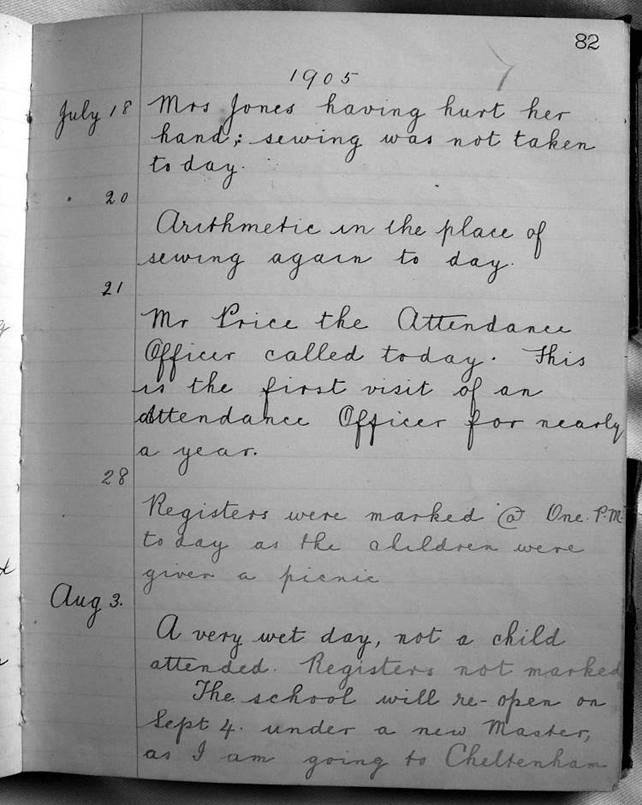 82
1905
July 18 Mrs Jones having hurt her
hand; sewing was not taken
to day.
20
Arithmetic in the place of
sewing again to day.
21
Mr Price the Attendance
Officer called today. This
is the first visit of an
Attendance Officer for nearly
a year.
28
Registers were marked @ One P.M.
to day as the children were
given a picnic
Aug 3.
A very wet day, not a child
attended. Registers not marked
The school will re-open on
Sept 4. under a new Master,
as I am going to Cheltenham